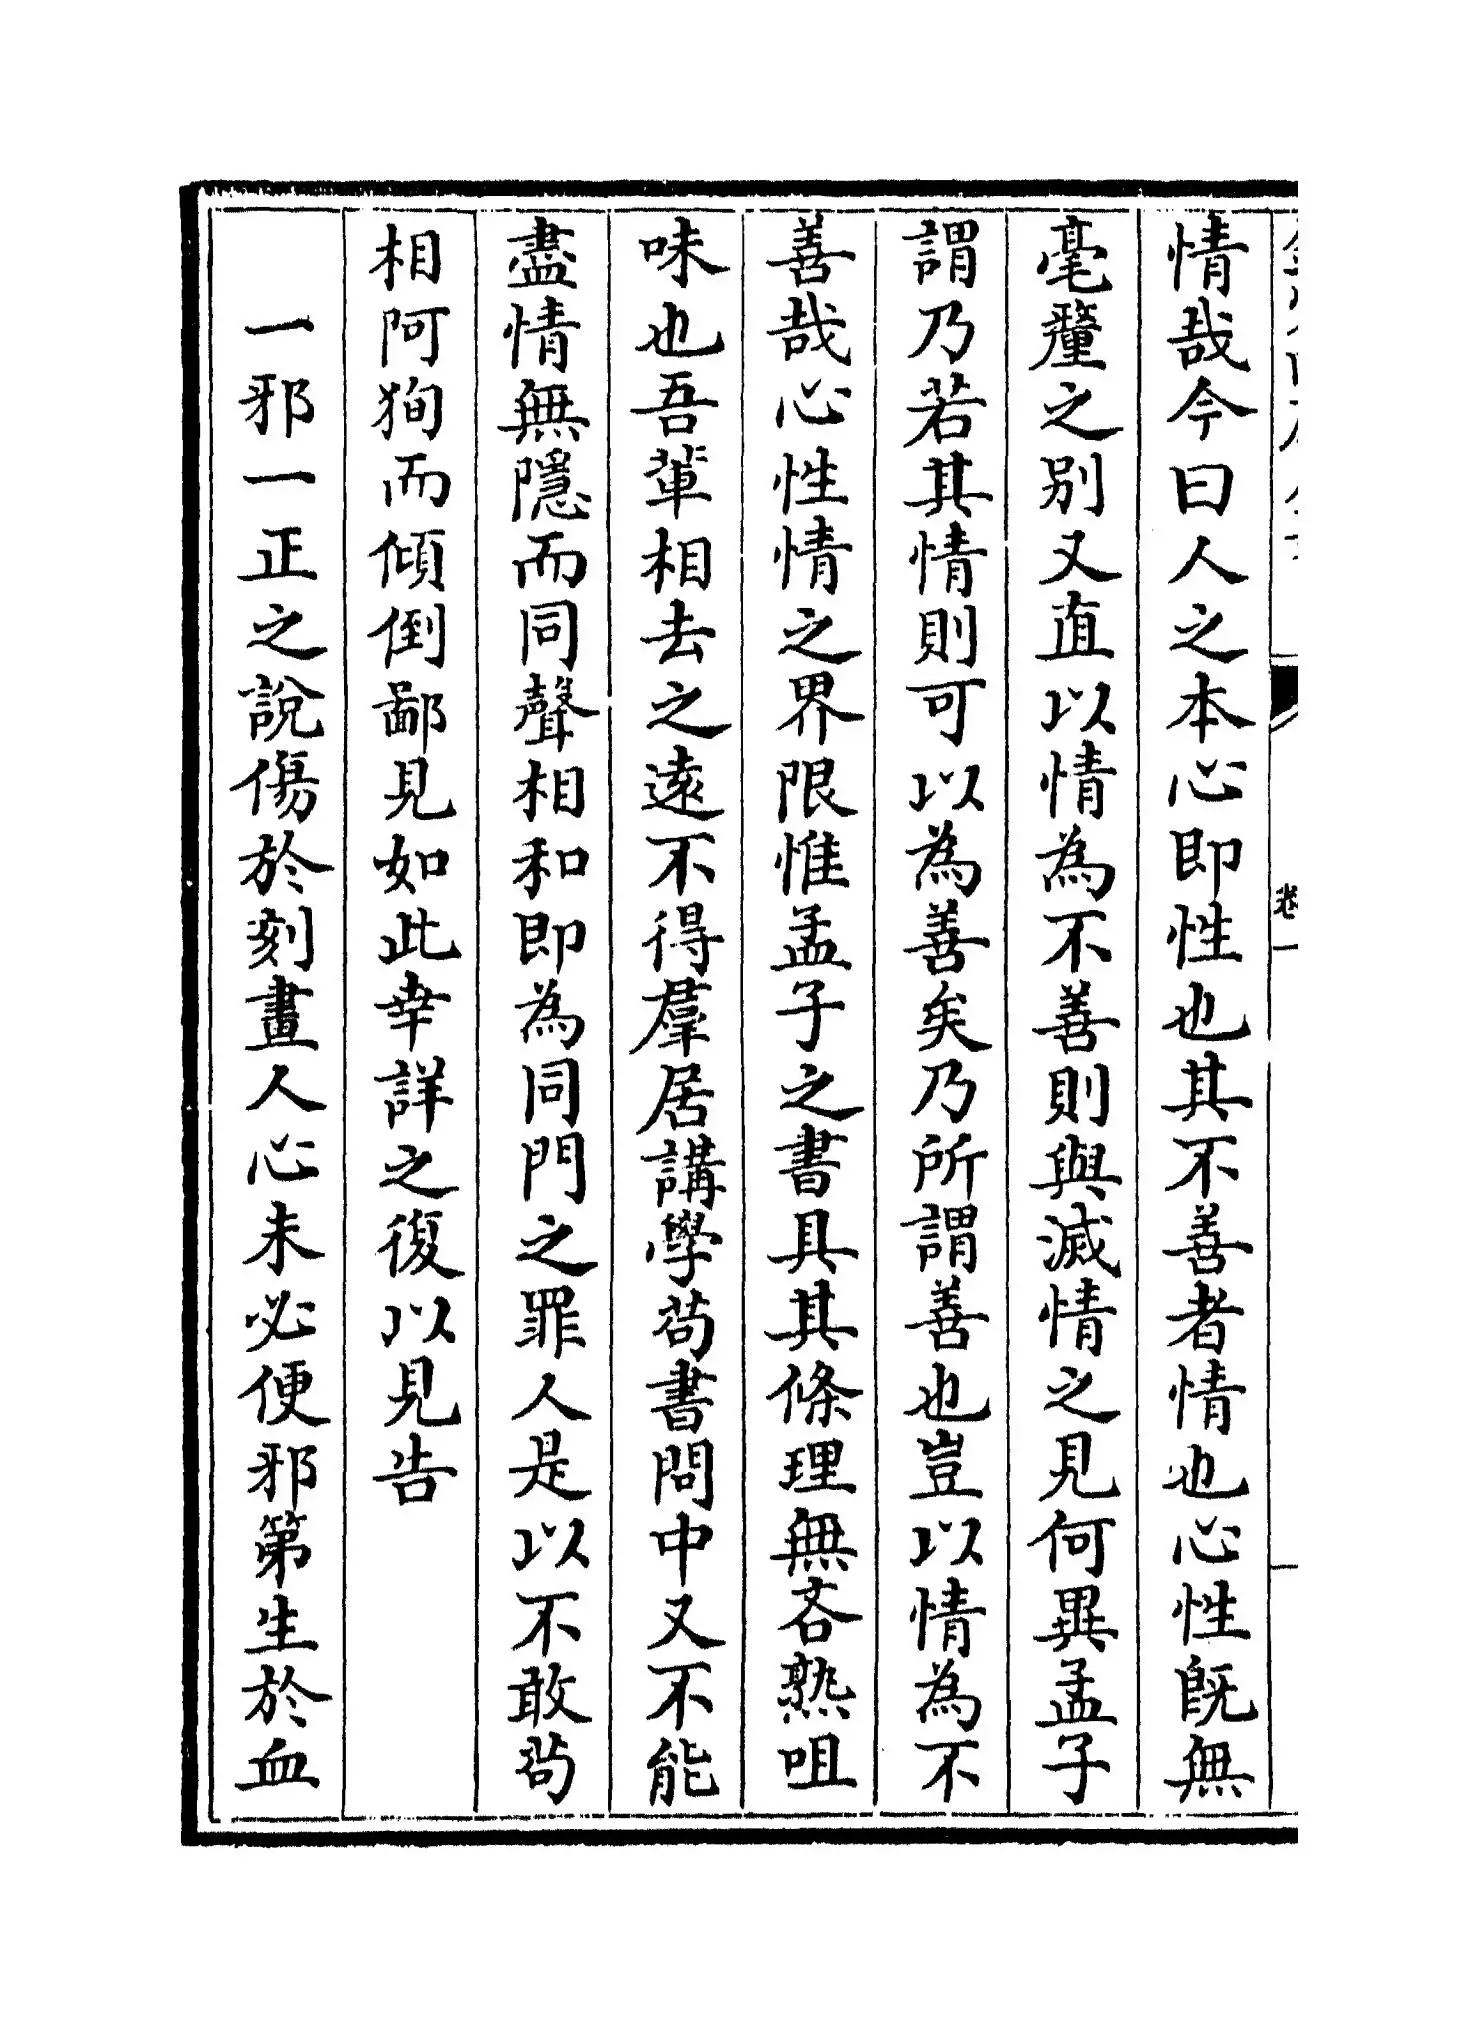 情哉今曰人之本心即性也其不善者情也心性既無
毫釐之別又直以情為不善則與滅情之見何異孟子
謂乃若其情則可以為善矣乃所謂善也豈以情為不
善哉心性情之界限惟孟子之書具其條理無吝熟咀
味也吾輩相去之遠不得羣居講學茍書問中又不能
盡情無隱而同聲相和即為同門之罪人是以不敢茍
相阿狥而傾倒鄙見如此幸詳之復以見告
一邪一正之說傷於刻畫人心未必便邪第生於血
卷一